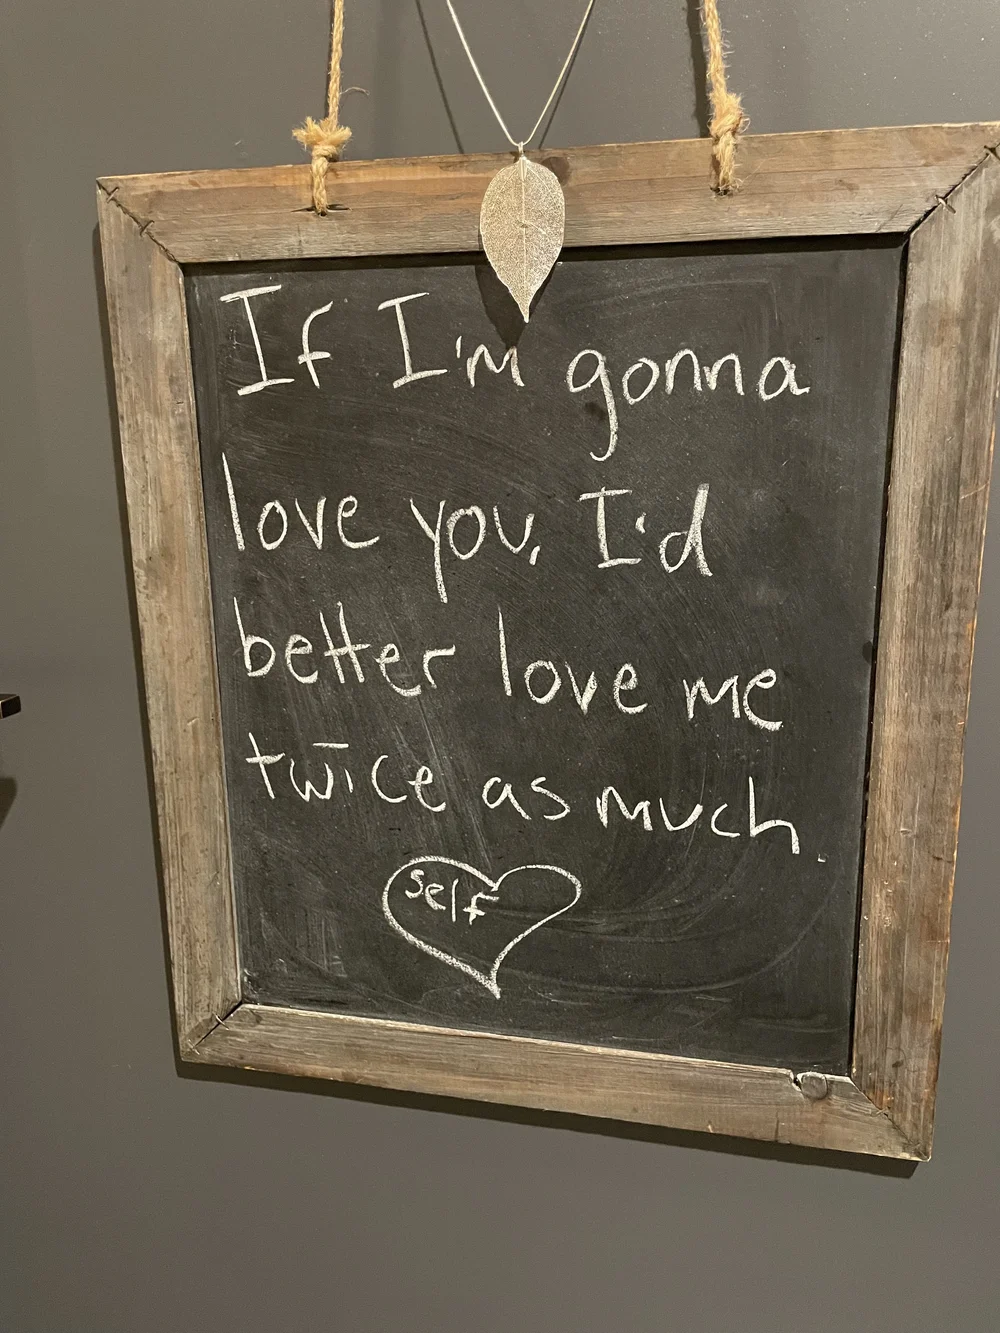 If I'm gonna
love you, I'd
better love me
twice as much.
self